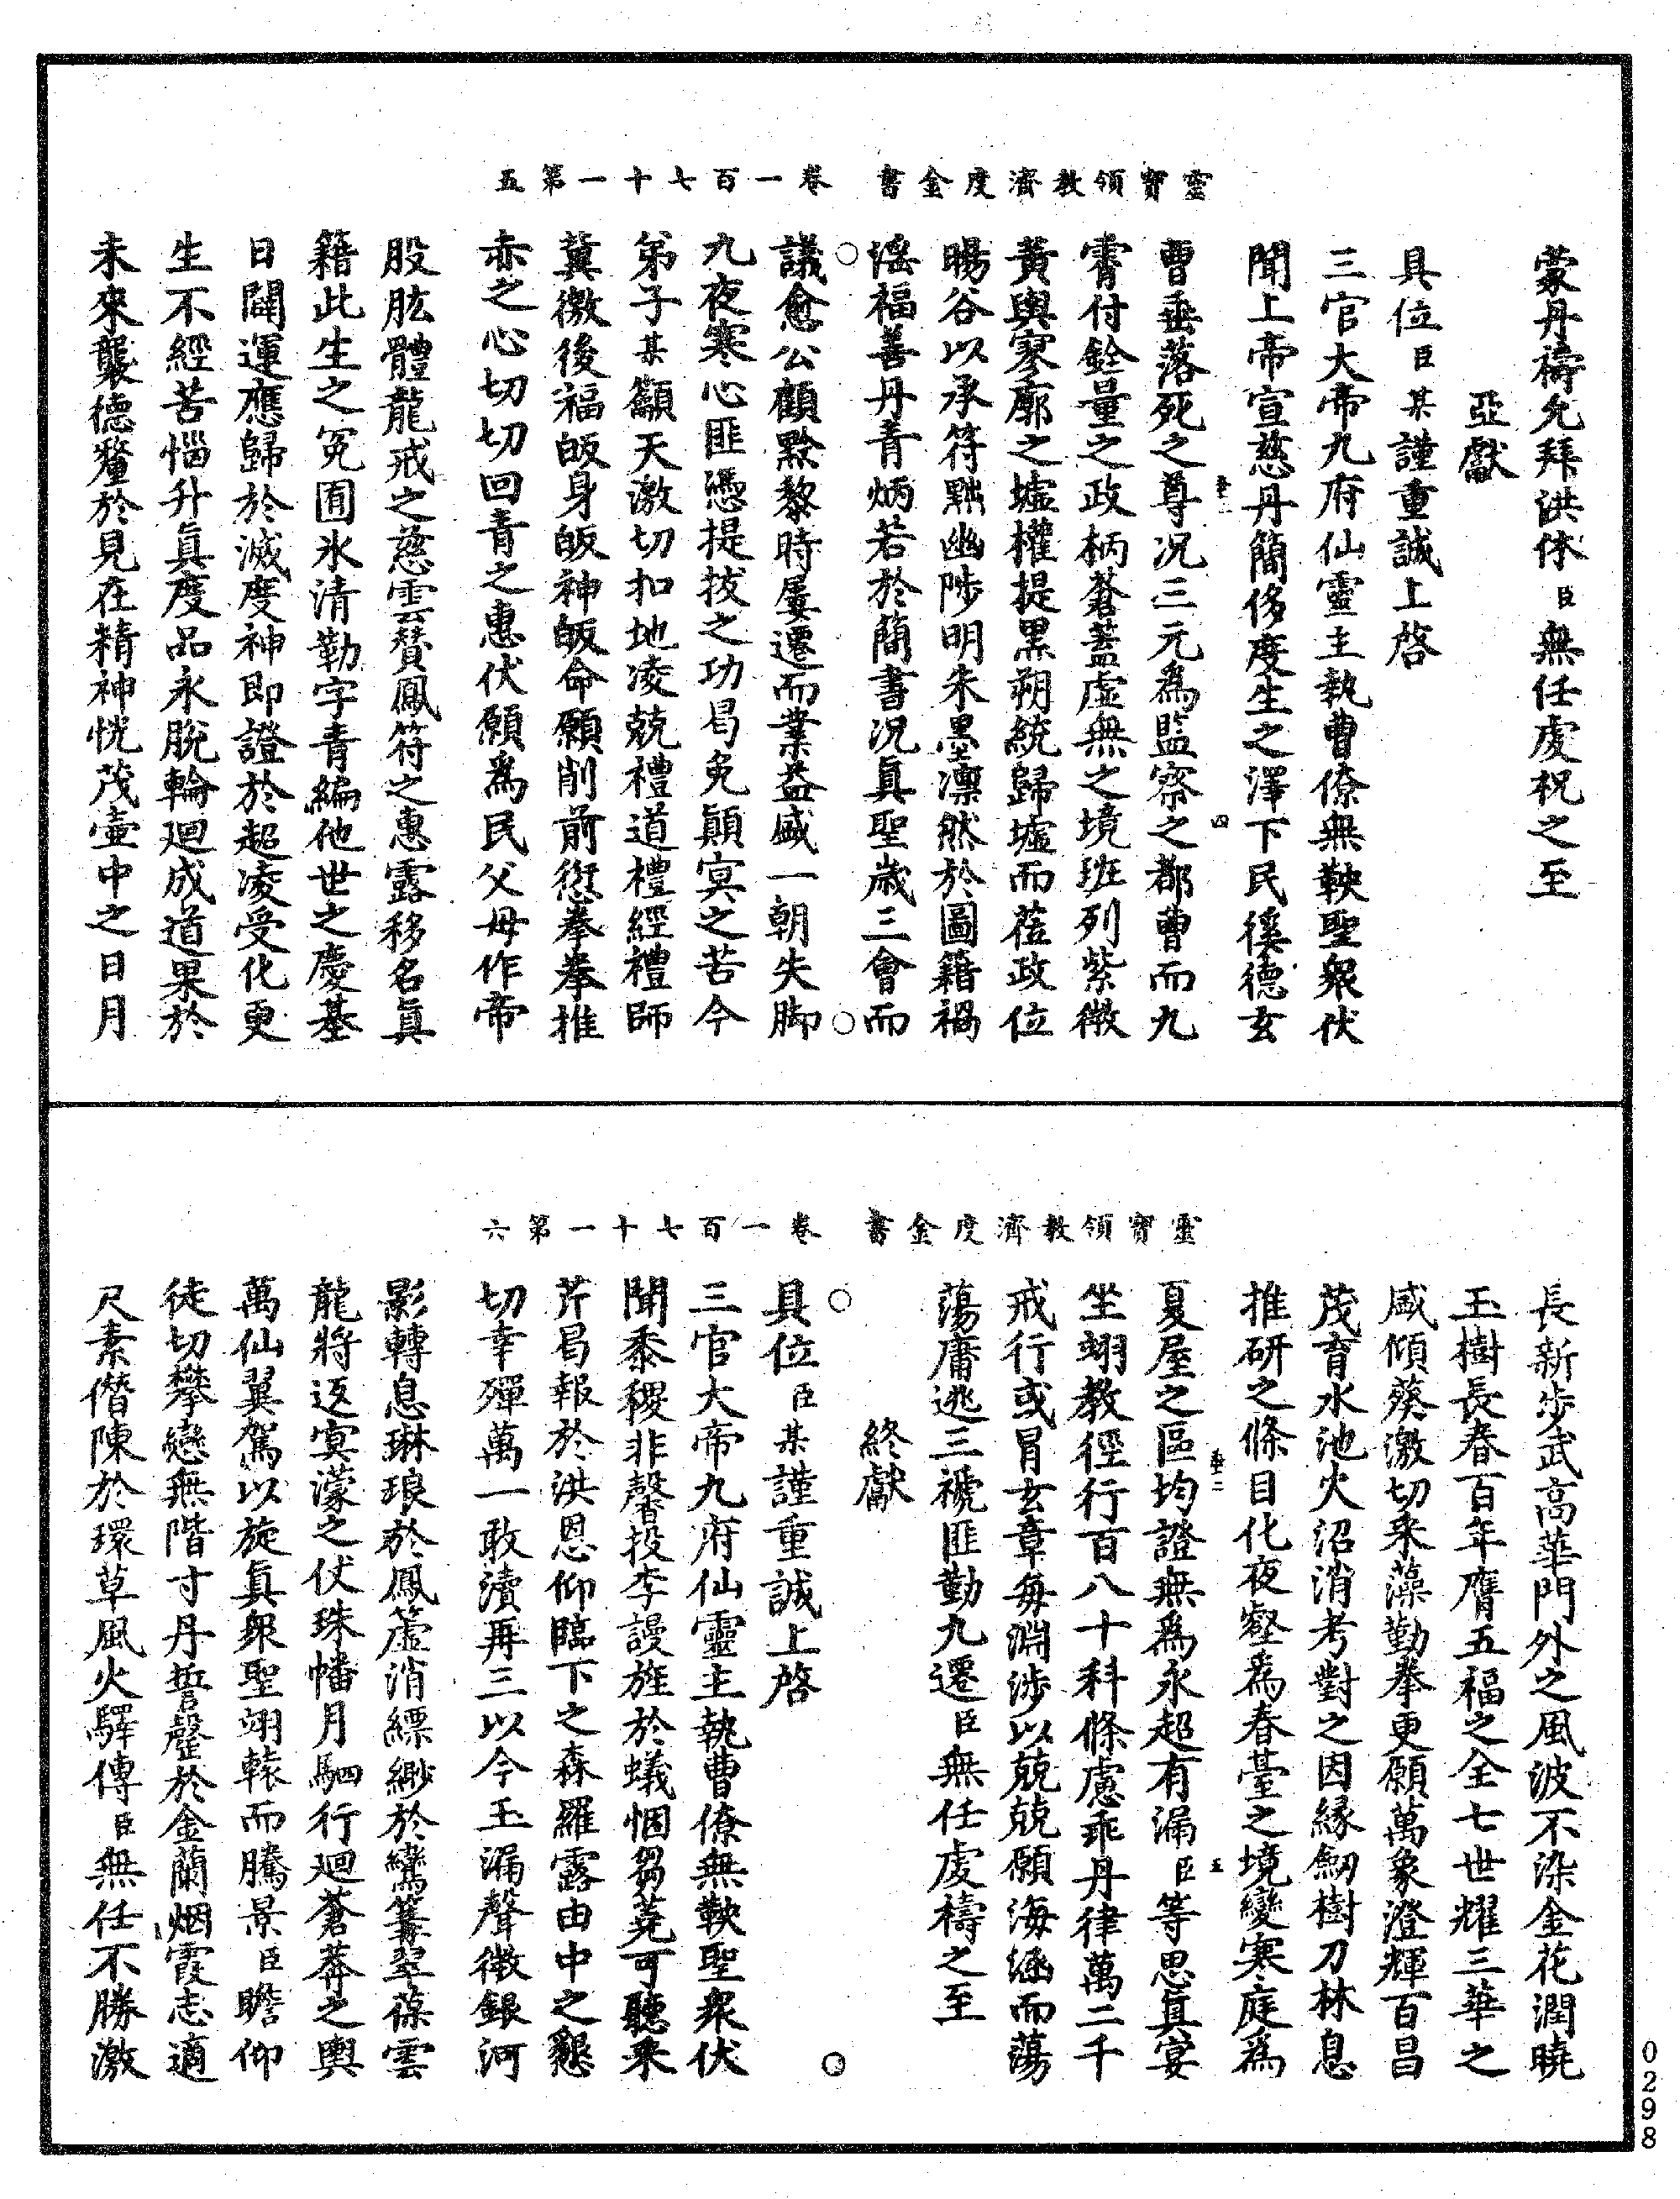 靈寶領教濟度金書　卷一百七十一第五
蒙丹禱允拜洪休臣無任虔祝之至
亞獻
具位臣某謹重誠上啓
三官大帝九府仙靈主執曹僚無鞅聖衆伏
聞上帝宣慈丹簡侈度生之澤下民徯德玄
曹垂落死之尊况三元爲監察之都曹而九
霄付銓量之政柄蒼蓋虛無之境班列紫微
黄輿寥廓之墟權提黑朔統歸墟而蒞政位
暘谷以承符黜幽陟明朱墨凛然於圖籍禍
淫福善丹青炳若於簡書况眞聖歲三會而
議愈公顧黔黎時屢遷而業益盛一朝失脚
九夜寒心匪憑提拔之功曷免顚寘之苦今
弟子某籲天激切扣地凌兢禮道禮經禮師
冀徼後福皈身皈神皈命願削前愆拳拳推
赤之心切切回青之惠伏願爲民父母作帝
股肱體龍戒之慈雲贊鳳符之惠露移名眞
籍此生之冤囿氷清勒字青編他世之慶基
日闢運應歸於滅度神即證於超凌受化更
生不經苦惱升眞度品永脫輪迴成道果於
未來襲德釐於見在精神恍茂壷中之日月
靈寶領教濟度金書　卷一百七十一第六
長新步武高華門外之風波不染金花潤曉
玉樹長春百年膺五福之全七世耀三華之
盛傾葵激切采藻勤拳更願萬象澄輝百昌
茂育水池火沼消考對之因縁劒樹刀林息
推研之條目化夜壑爲春臺之境變寒庭爲
夏屋之區均證無爲永超有漏臣等思眞宴
坐翊教徑行百八十科條慮乖丹律萬二千
戒行或冒玄章每淵涉以兢兢願海涵而蕩
蕩庸逃三褫匪勤九遷臣無任虔禱之至
終獻
具位臣某謹重誠上啓
三官大帝九府仙靈主執曹僚無鞅聖衆伏
聞黍稷非馨投李謾旌於蟻悃芻蕘可聽采
芹曷報於洪恩仰臨下之森羅露由中之懇
切幸殫萬一敢瀆再三以今玉漏聲微銀河
影轉息琳琅於鳳簴消縹緲於鸞篝翠葆雲
龍將返寘濛之仗珠幡月駟行迴蒼莽之輿
萬仙翼駕以旋眞衆聖翊轅而騰景臣瞻仰
徒切攀戀無階寸丹誓罄於金蘭烟霞志適
尺素僭陳於環草風火驛傳臣無任不勝激
0298